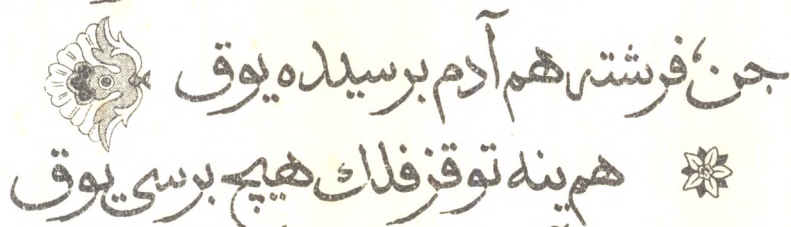 جن، فرشته هم آدم برسیده یوق
هم ینه توقز فلك هیچ برسی یوق